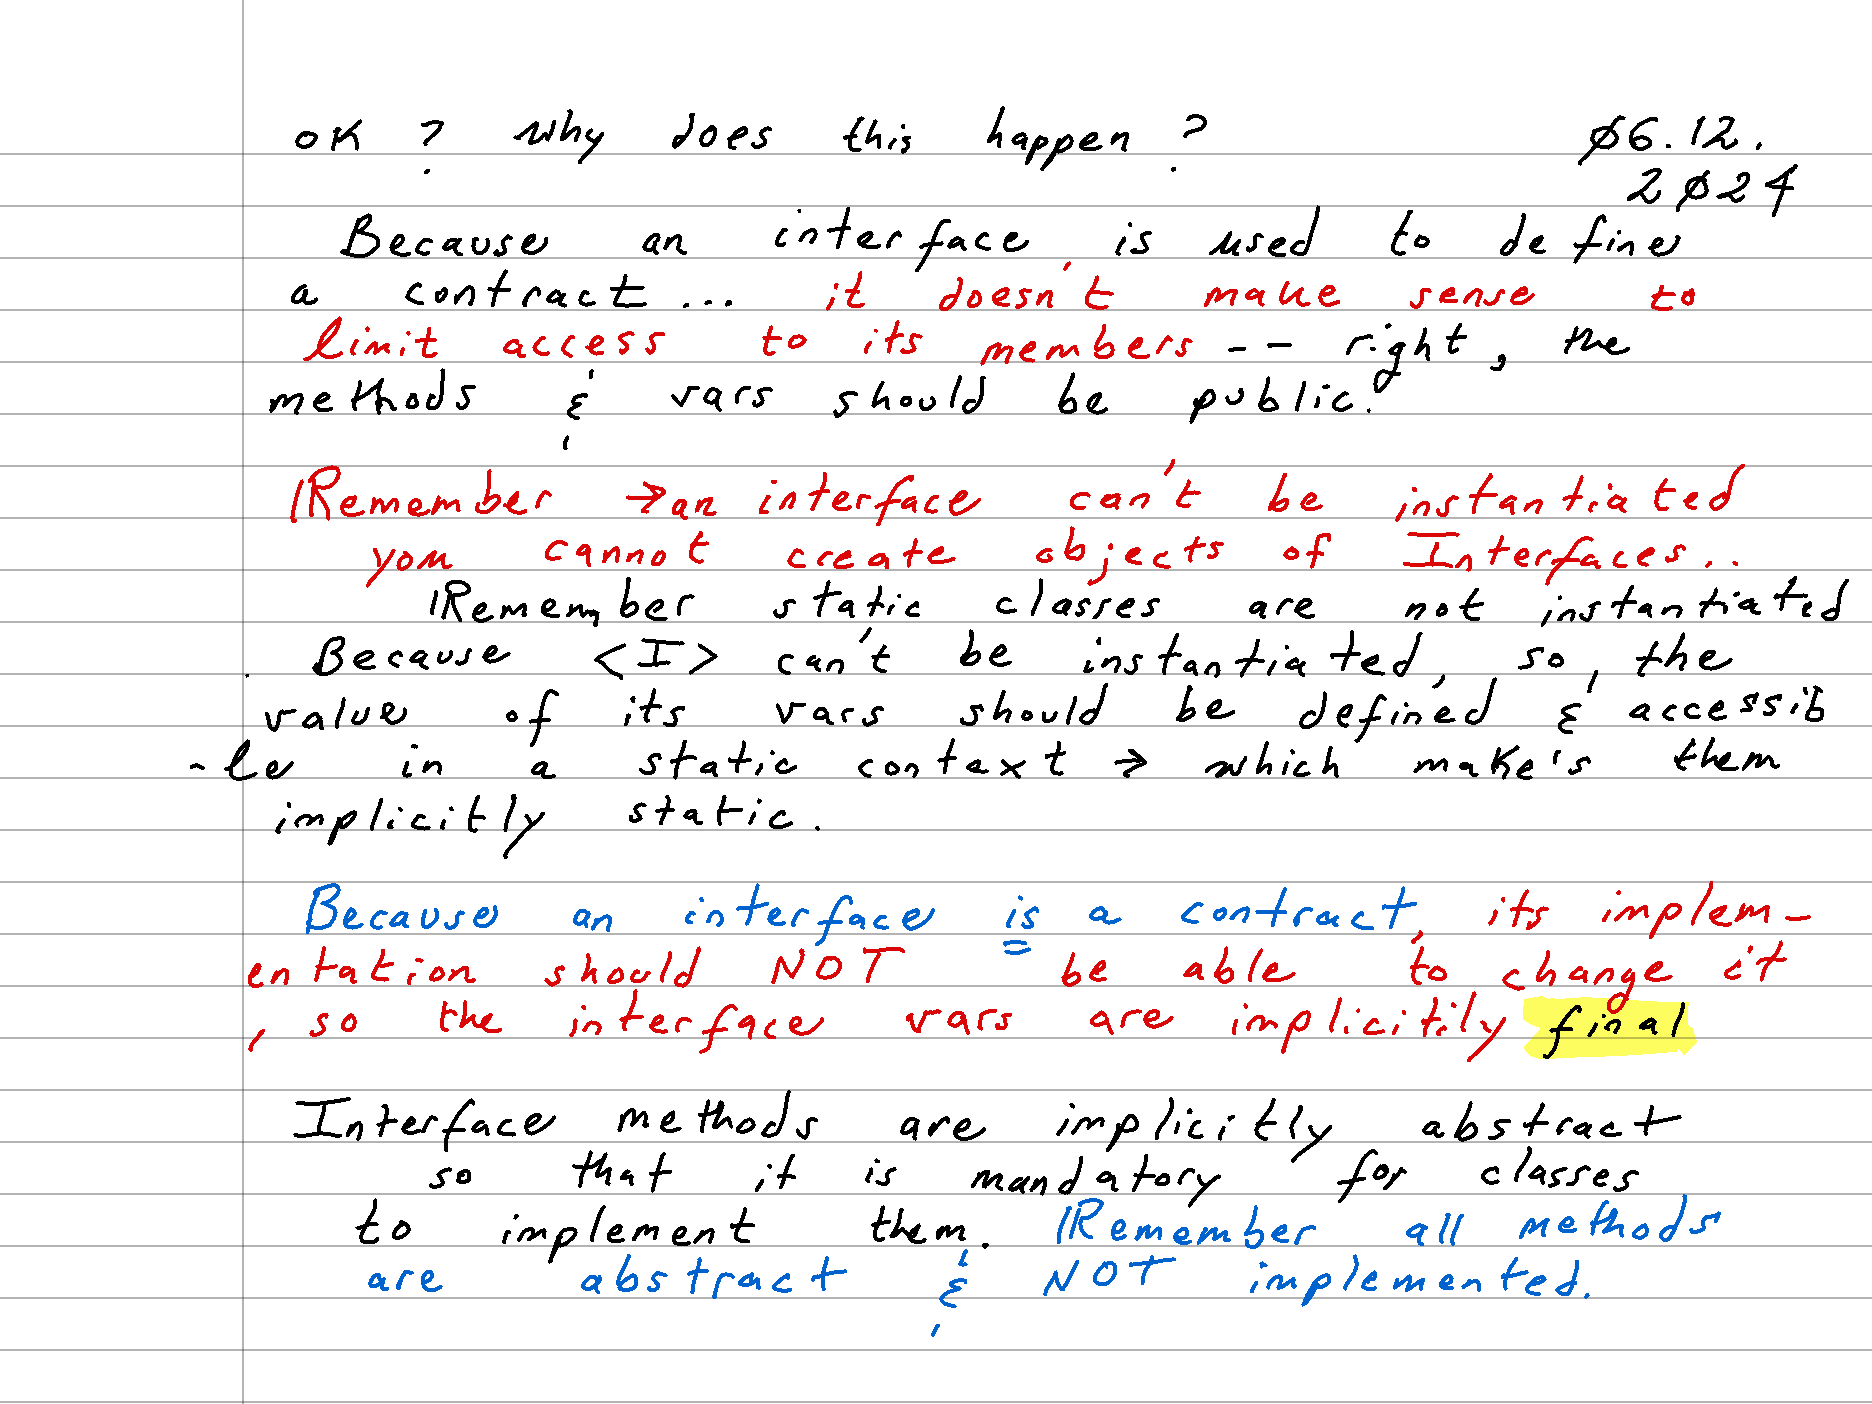 OK ? Why does this happen ? 06.12.
2024
Because an interface is used to define
a contract... it doesn't make sense to
limit access to its members -- right, the
methods & vars should be public.
Remember → an interface can't be instantiated
you cannot create objects of Interfaces..
Remember static classes are not instantiated
. Because <I> can't be instantiated, so, the
value of its vars should be defined & accessib
-le in a static context → which make's them
implicitly static.
Because an interface is a contract, its implem-
entation should NOT be able to change it
, so the interface vars are implicitily final
Interface methods are implicitly abstract
so that it is mandatory for classes
to implement them. Remember all methods
are abstract & NOT implemented.